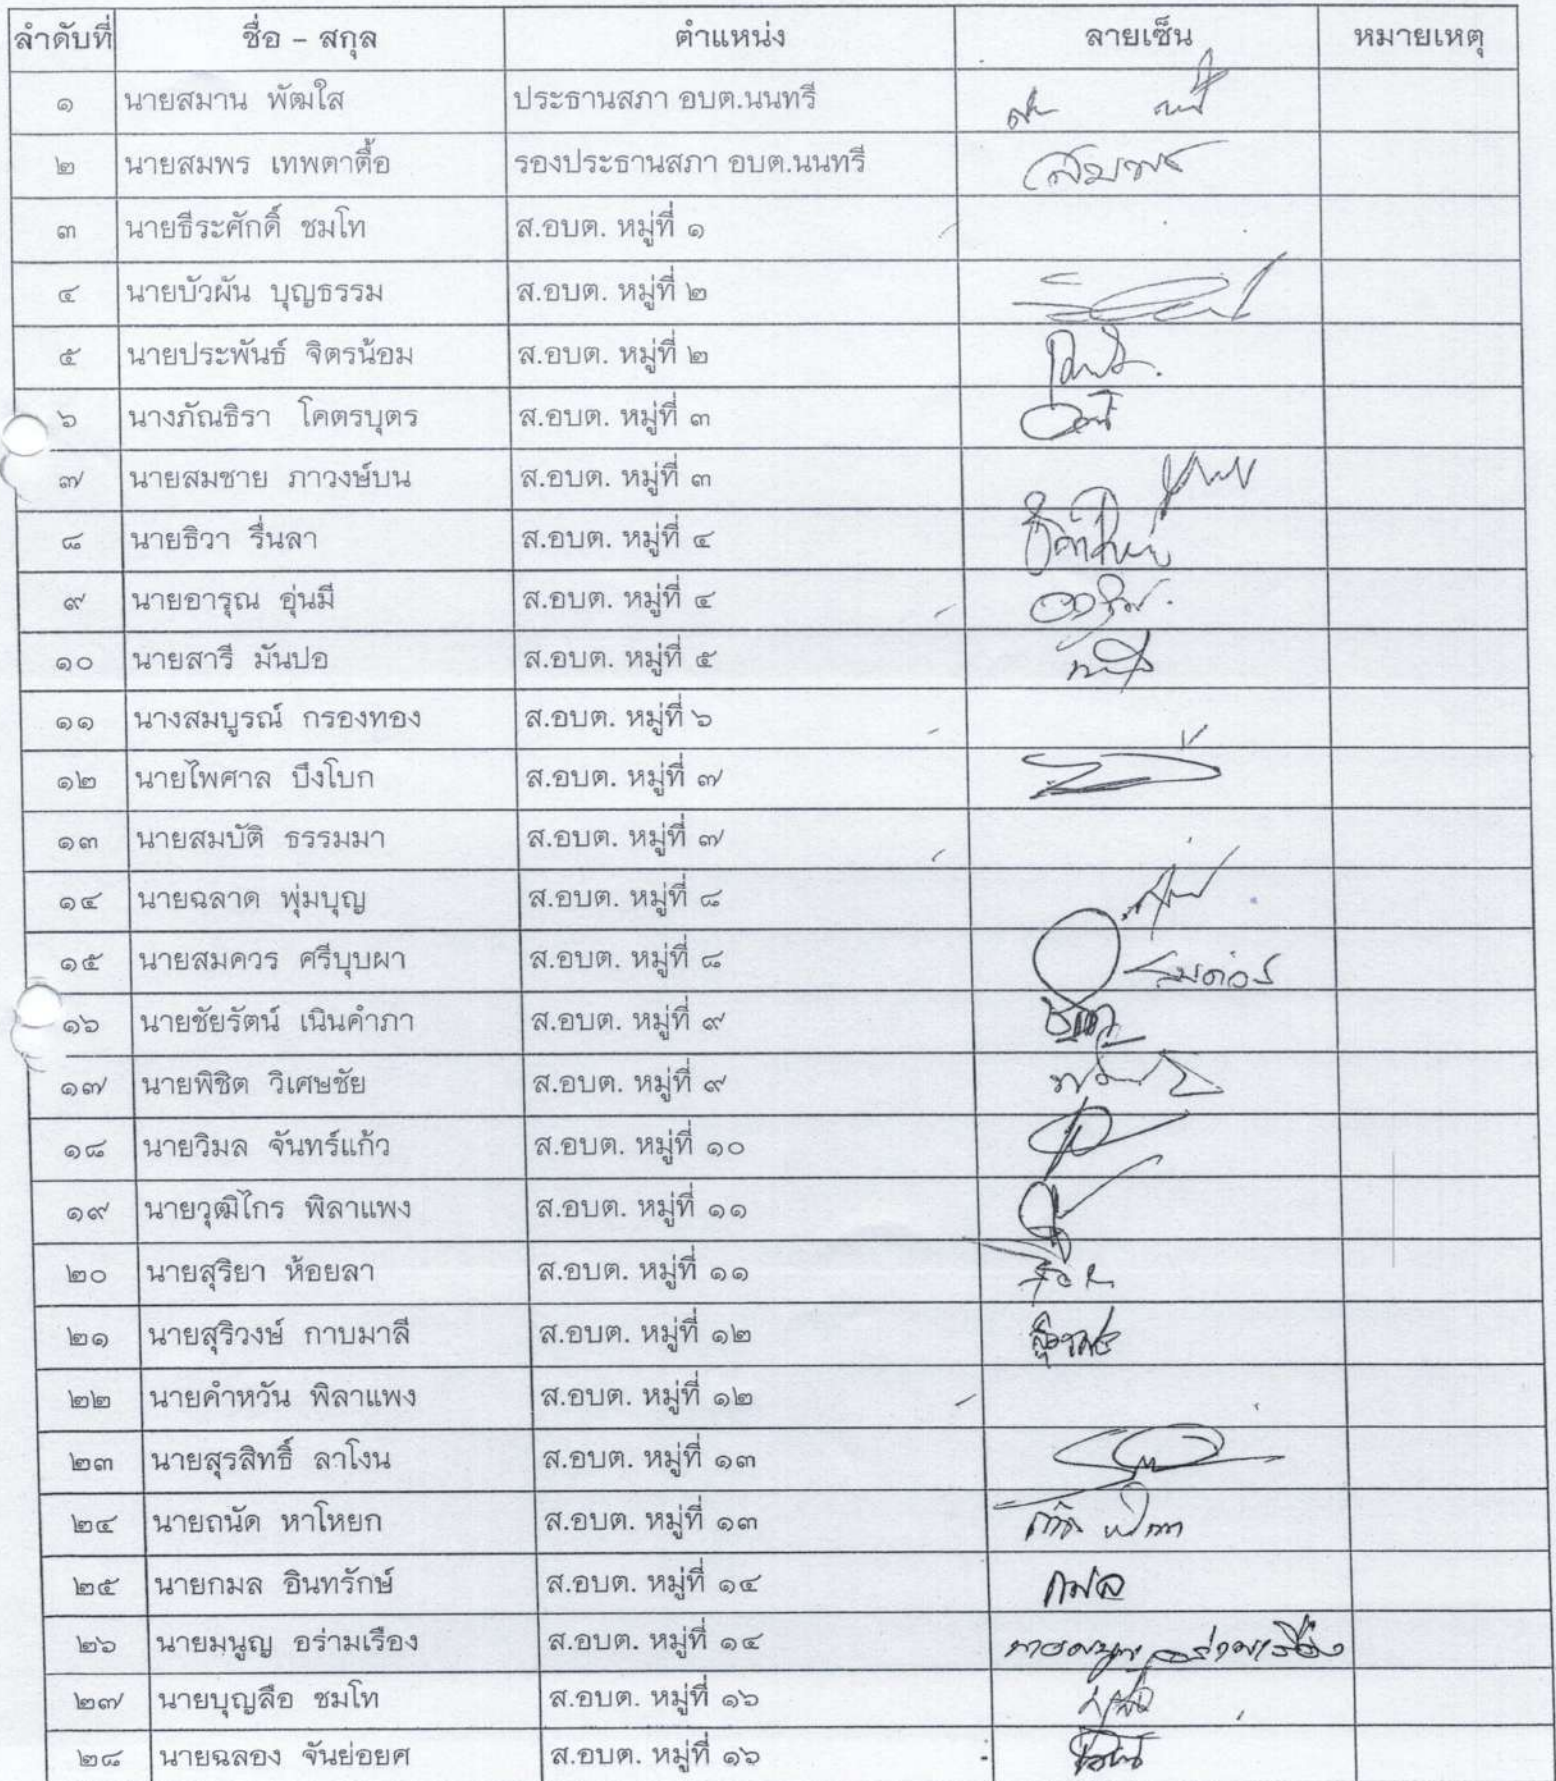 ลำดับที่ ชื่อ - สกุล ตำแหน่ง ลายเซ็น หมายเหตุ
๑ นายสมาน พัฒใส ประธานสภา อบต.นนทรี
๒ นายสมพร เทพตาดื้อ รองประธานสภา อบต.นนทรี สมพร
๓ นายธีระศักดิ์ ชมโท ส.อบต. หมู่ที่ ๑
๔ นายบัวผัน บุญธรรม ส.อบต. หมู่ที่ ๒
๕ นายประพันธ์ จิตรน้อม ส.อบต. หมู่ที่ ๒
๖ นางภัณธิรา โคตรบุตร ส.อบต. หมู่ที่ ๓
๗ นายสมชาย ภาวงษ์บน ส.อบต. หมู่ที่ ๓
๘ นายธิวา รื่นลา ส.อบต. หมู่ที่ ๔
๙ นายอารุณ อุ่นมี ส.อบต. หมู่ที่ ๔
๑๐ นายสารี มันปอ ส.อบต. หมู่ที่ ๕
๑๑ นางสมบูรณ์ กรองทอง ส.อบต. หมู่ที่ ๖
๑๒ นายไพศาล บึงโบก ส.อบต. หมู่ที่ ๗
๑๓ นายสมบัติ ธรรมมา ส.อบต. หมู่ที่ ๗
๑๔ นายฉลาด พุ่มบุญ ส.อบต. หมู่ที่ ๘
๑๕ นายสมควร ศรีบุบผา ส.อบต. หมู่ที่ ๘
๑๖ นายชัยรัตน์ เนินคำภา ส.อบต. หมู่ที่ ๙
๑๗ นายพิชิต วิเศษชัย ส.อบต. หมู่ที่ ๙
๑๘ นายวิมล จันทร์แก้ว ส.อบต. หมู่ที่ ๑๐
๑๙ นายวุฒิไกร พิลาแพง ส.อบต. หมู่ที่ ๑๑
๒๐ นายสุริยา ห้อยลา ส.อบต. หมู่ที่ ๑๑
๒๑ นายสุริวงษ์ กาบมาลี ส.อบต. หมู่ที่ ๑๒
๒๒ นายคำหวัน พิลาแพง ส.อบต. หมู่ที่ ๑๒
๒๓ นายสุรสิทธิ์ ลาโงน ส.อบต. หมู่ที่ ๑๓
๒๔ นายถนัด หาโหยก ส.อบต. หมู่ที่ ๑๓
๒๕ นายกมล อินทรักษ์ ส.อบต. หมู่ที่ ๑๔ กมล
๒๖ นายมนูญ อร่ามเรือง ส.อบต. หมู่ที่ ๑๔ นายมนูญ อร่ามเรือง
๒๗ นายบุญลือ ชมโท ส.อบต. หมู่ที่ ๑๖
๒๘ นายฉลอง จันย่อยศ ส.อบต. หมู่ที่ ๑๖